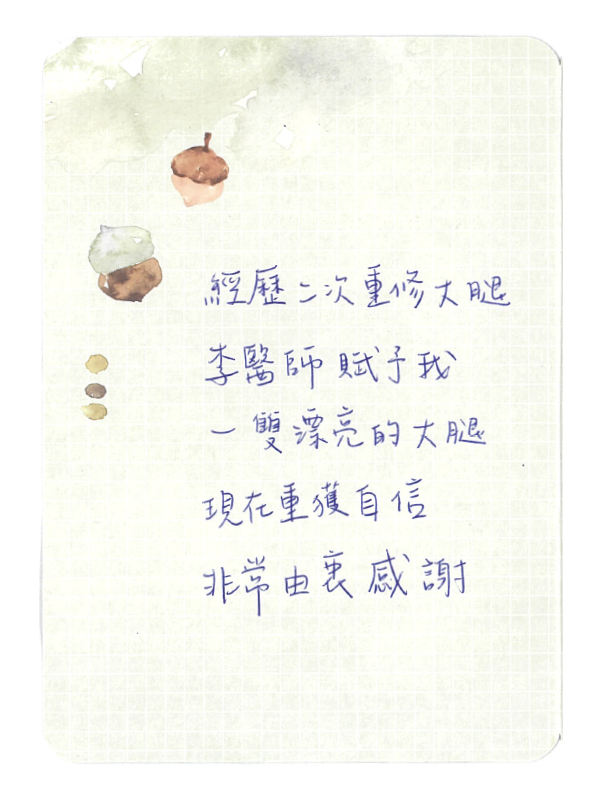 經歷二次重修大腿
李醫師賦予我
一雙漂亮的大腿
現在重獲自信
非常由衷感謝